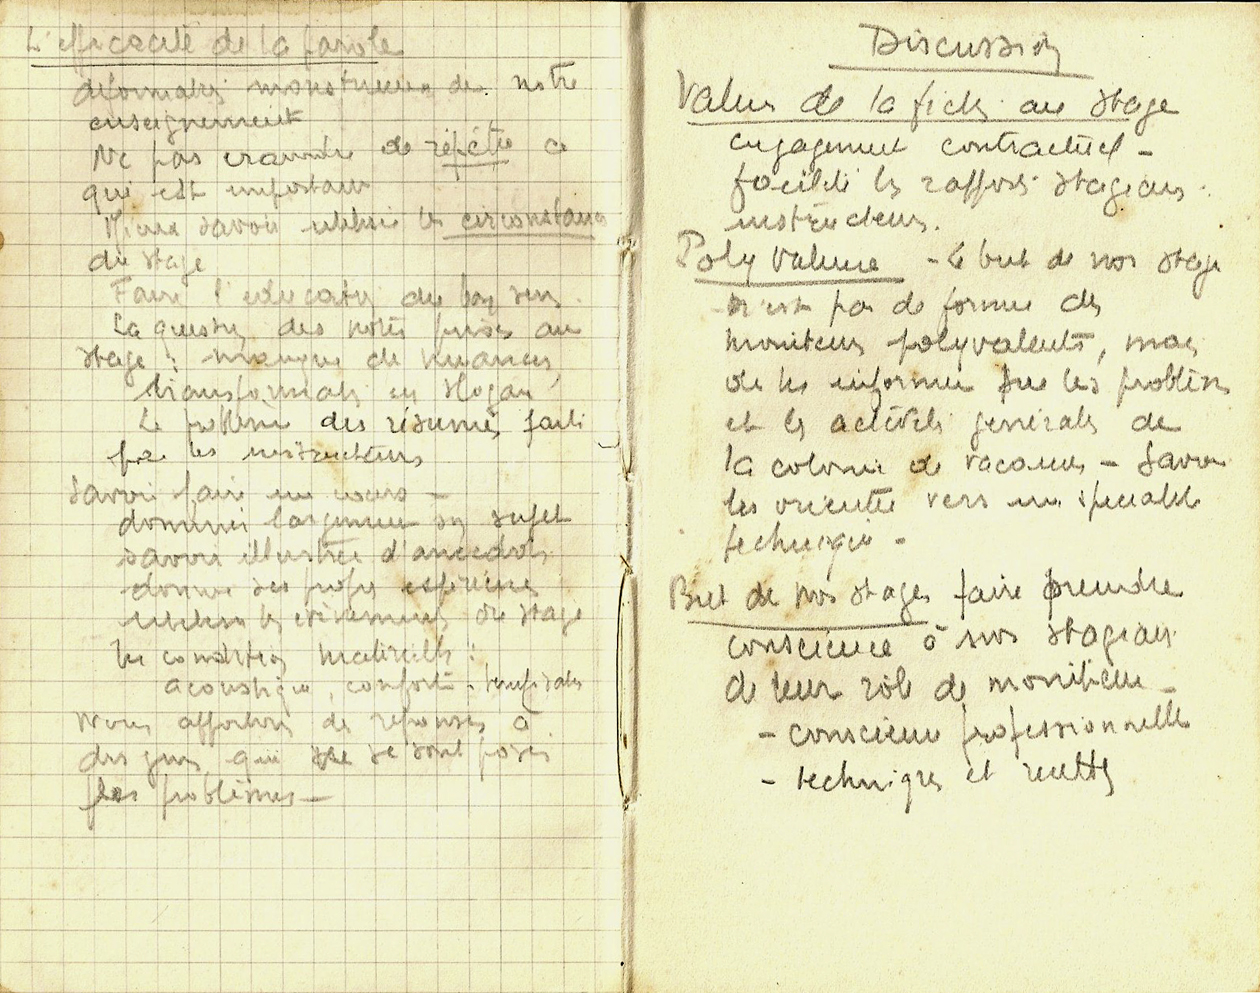 L'efficacité de la parole
déformations monstrueuses de notre
enseignement
Ne pas craindre de répéter ce
qui est important
Mieux savoir utiliser les circonstances
du stage
Faire l'éducation du bon sens.
La question des notes prises au
stage : manque de nuances,
transformation en slogan
Le problème des résumés faits
par les instructeurs
Savoir faire un cours -
dominer largement son sujet
savoir illustrer d'anecdotes
donner ses propres expériences
utiliser les évènements du stage
les conditions matérielles :
acoustique, confort,
Nous apportons des réponses à
des gens qui se sont posés
des problèmes -
Discussion
Valeur de la fiche au stage
engagement contractuel -
facilité les rapports stagiaires.
instructeurs.
Polyvalence - Le but de nos stages
n'est pas de former des
moniteurs polyvalents, mais
de les informer sur les problèmes
et les activités générales de
la colonie de vacances - Savoir
les orienter vers une spécialité
technique -
But de nos stages faire prendre
conscience à nos stagiaires
de leur rôle de moniteur -
- conscience professionnelle
- techniques et recettes